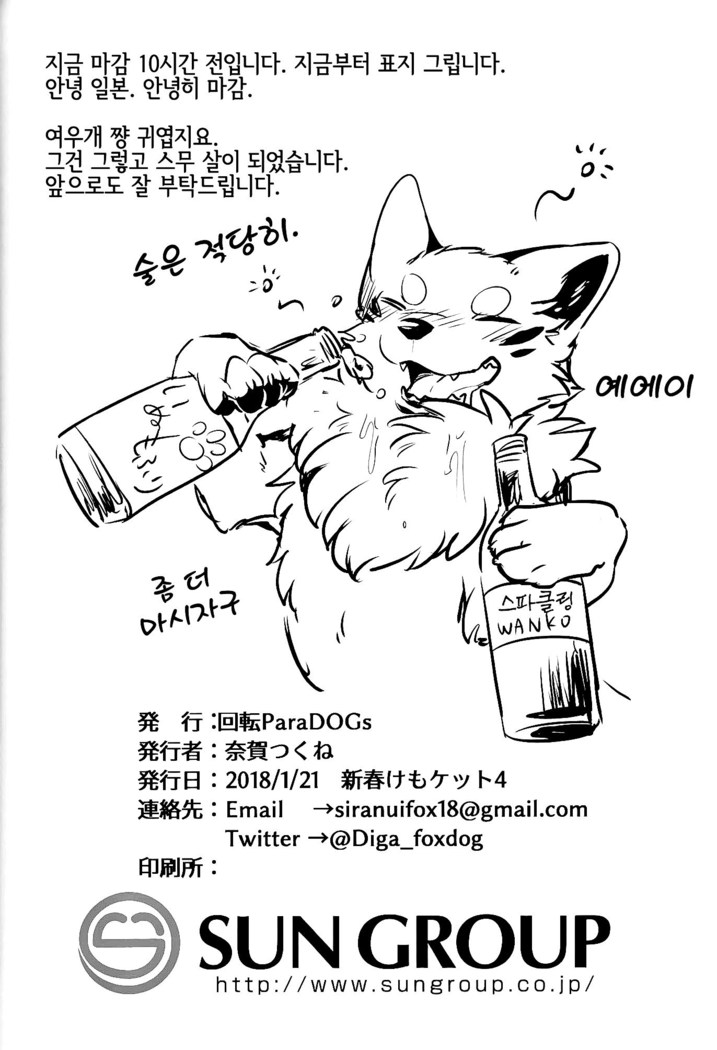 지금 마감 10시간 전입니다. 지금부터 표지 그립니다.
안녕 일본. 안녕히 마감.
여우개 쨩 귀엽지요.
그건 그렇고 스무 살이 되었습니다.
앞으로도 잘 부탁드립니다.
술은 적당히.
예에이
좀 더
마시자구
스파클링
WANKO
発 行：回転ParaDOGs
発行者：奈賀つくね
発行日：2018/1/21 新春けもケット4
連絡先：Email →siranuifox18@gmail.com
Twitter →@Diga_foxdog
印刷所：
SUN GROUP
http://www.sungroup.co.jp/